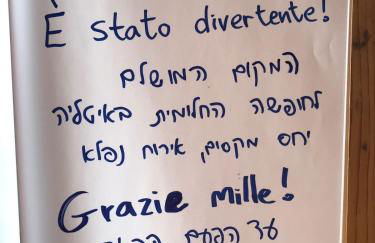 È stato divertente!
המקום המושלם
לחופשה החלומית באיטליה
יחס מקסים, אירוח נפלא
Grazie mille!
עד הפעם